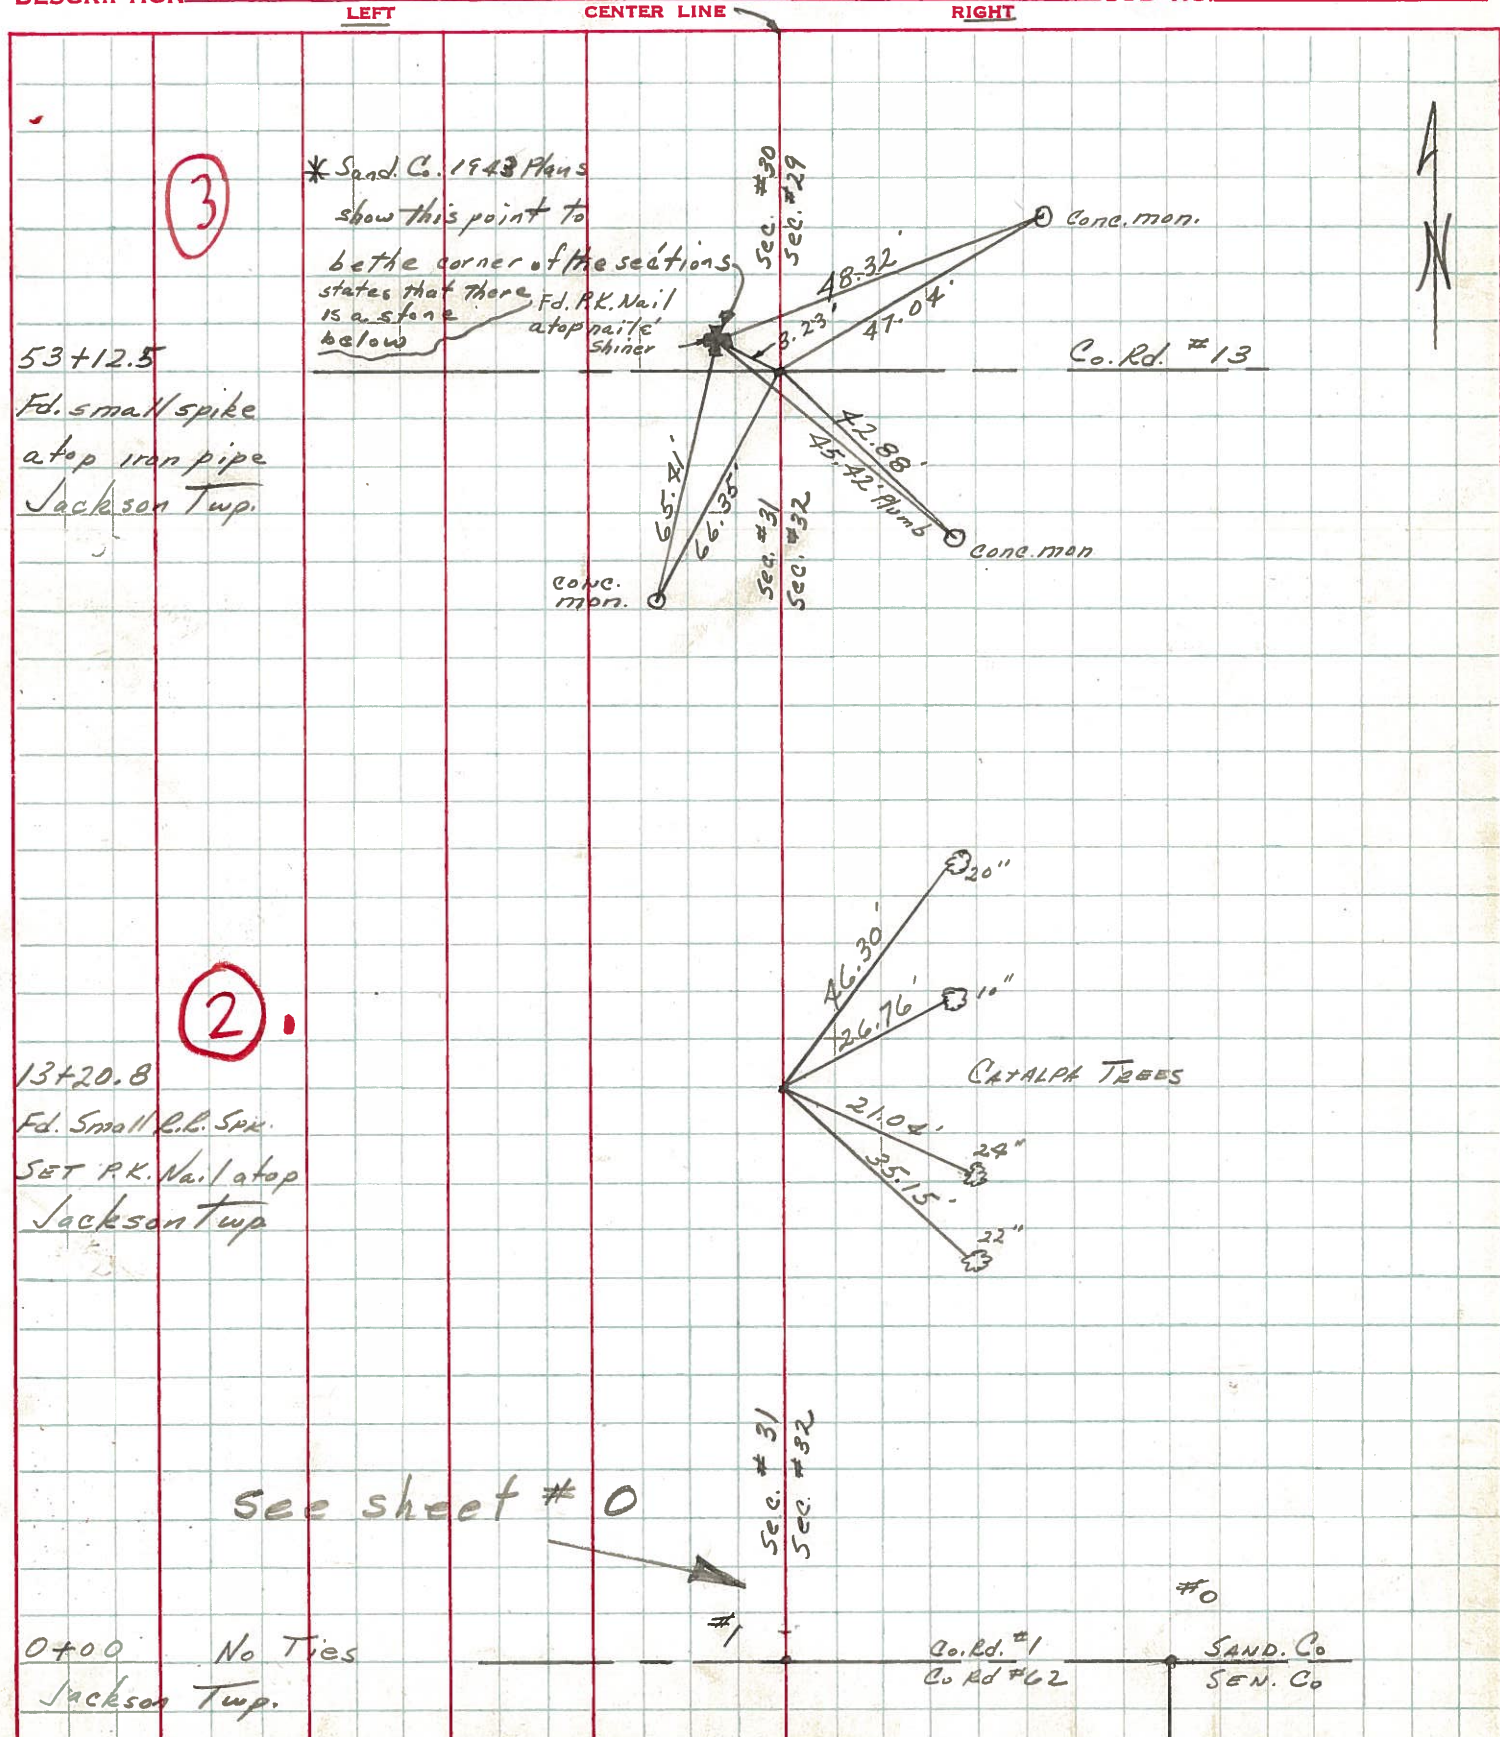 LEFT
CENTER LINE
RIGHT
3
* Sand. Co. 1943 Plans
show this point to
be the corner of the sections
states that there
is a stone
below
Fd. P.K. Nail
atop nail &
Shiner
Sec. #30
Sec. #29
Conc. mon.
48.32'
47.04'
3.23'
53+12.5
Co. Rd. #13
Fd. small spike
atop iron pipe
Jackson Twp.
42.88'
45.42' Plumb
65.41'
66.35'
Sec. #31
Sec. #32
Conc. mon
conc.
mon.
20"
46.30'
10"
26.76'
2
13+20.8
CATALPA TREES
Fd. Small R.R. Spk.
SET P.K. Nail atop
Jackson Twp
21.04'
24"
35.15'
22"
Sec. #31
Sec. #32
See sheet # 0
#0
#1
0+00 No Ties
Jackson Twp.
Co. Rd. #1
Co Rd #62
SAND. Co
SEN. Co